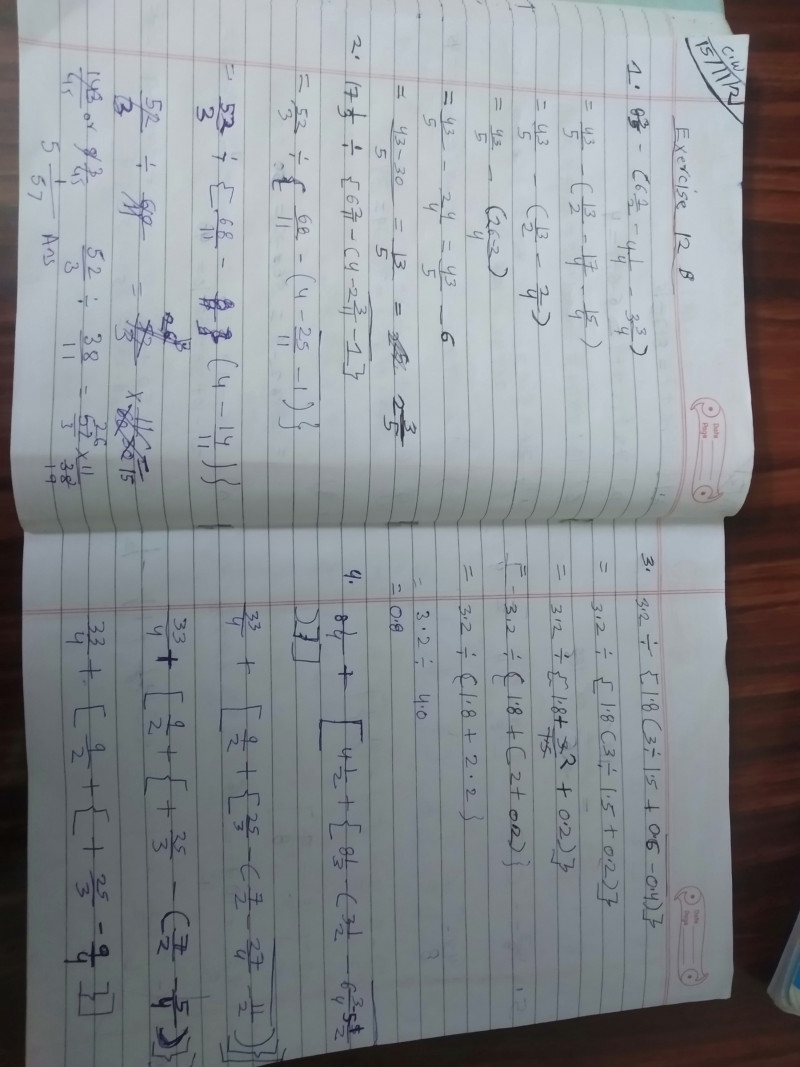 C.W
15/11/12
Exercise 12 B
Date
Page
1. 8 3/5 - (6 1/2 - 4 1/4 - 3 3/4)
= 43/5 - (13/2 - 17/4 - 15/4)
= 43/5 - (13/2 - 2/4)
= 43/5 - (26-2/4)
= 43/5 - 24/4 = 43/5 - 6
= 43-30/5 = 13/5 = 2 3/5
2. 17 1/3 ÷ {6 2/11 - (4 - 2 3/11 - 1)}
= 52/3 ÷ { 68/11 - (4 - 25/11 - 1)}
= 52/3 ÷ { 68/11 - (4 - 14/11)}
52/3 ÷ =
148/45 or 52/3 ÷ 38/11 = 52/3 × 11/38
26
19
5 1/57 Ans
Date
Page
3. 3.2 ÷ {1.8 (3 ÷ 1.5 + 0.6 - 0.4)}
= 3.2 ÷ {1.8 (3 ÷ 1.5 + 0.2)}
= 3.2 ÷ {1.8 + + 0.2)}
= 3.2 ÷ {1.8 + (2 + 0.2)}
= 3.2 ÷ {1.8 + 2.2}
= 3.2 ÷ 4.0
= 0.8
4. 8 1/4 + [4 1/2 + {8 1/3 - (3 1/2 - 6 3/4 - 5 1/2
)}]
33/4 + [9/2 + {25/3 - (7/2 - 27/4 - 11/2)}]
33/4 + [9/2 + { + 25/3 - (7/2 - 5/4)}]
33/4 + [9/2 + { + 25/3 - 9/4 }]